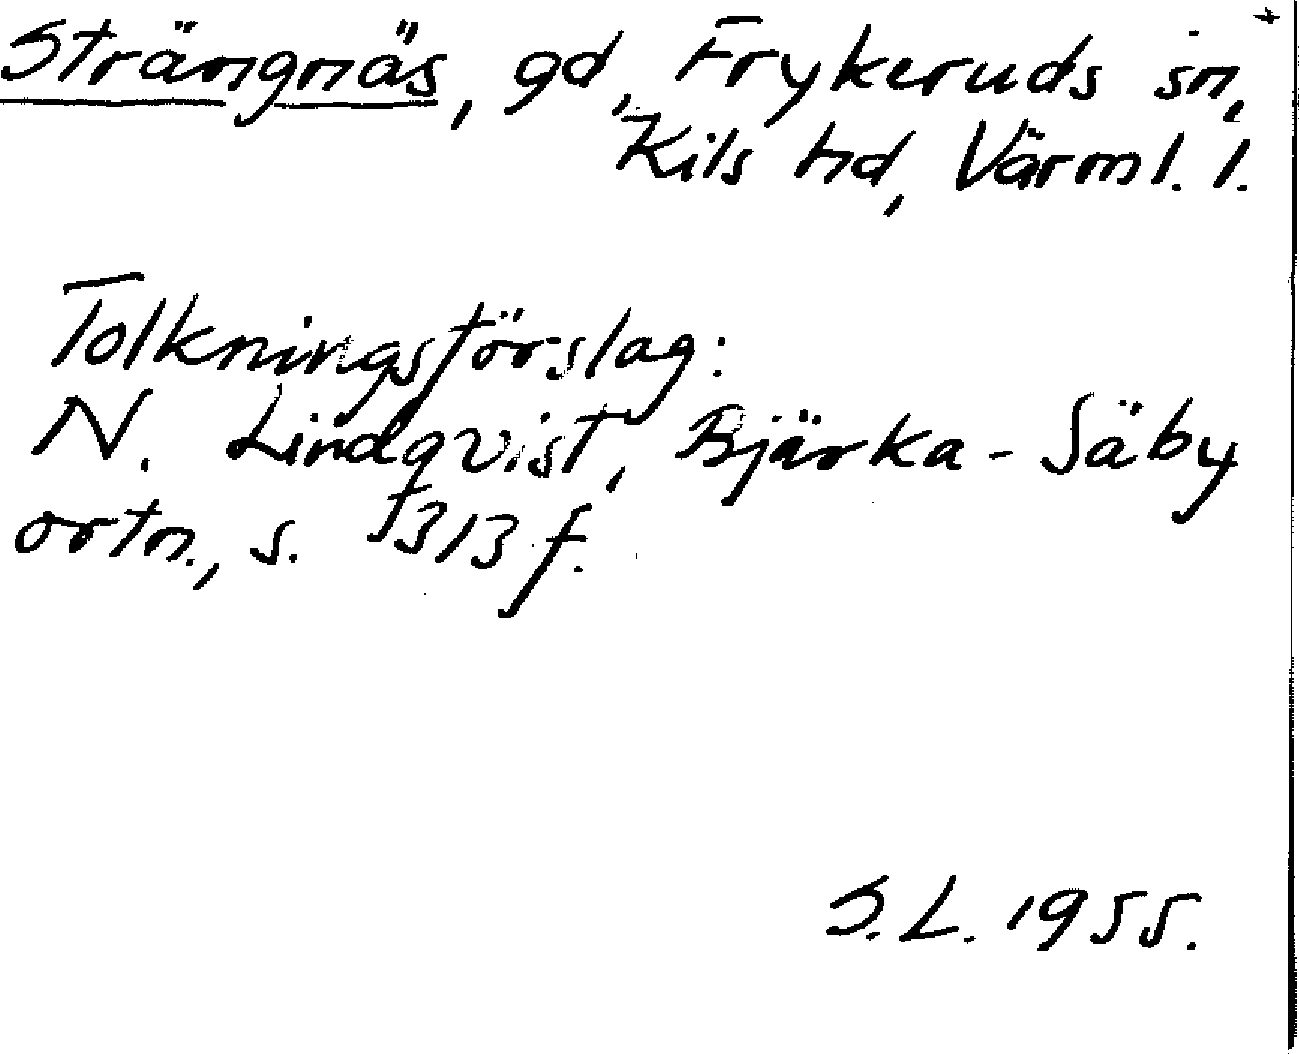 Strängnäs, gd, Frykeruds sn,
Kils hd, Värml. l.
Tolkningsförslag:
N. Lindqvist, Bjärka-Säby
ortn., s. 313 f.
S.L. 1955.